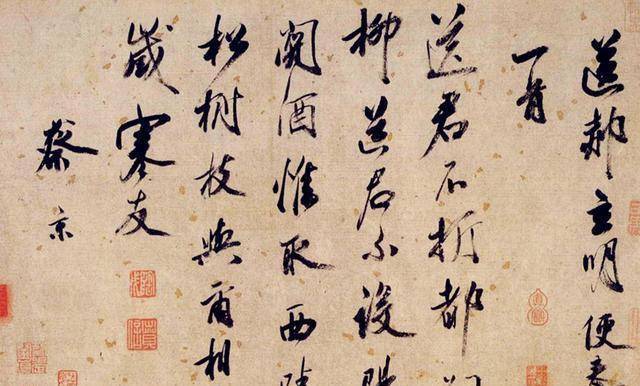 送郝玄明使秦
一首
送君不折都
柳送君不設
關酒惟取西
松樹枝與爾相
歲寒友
蔡京